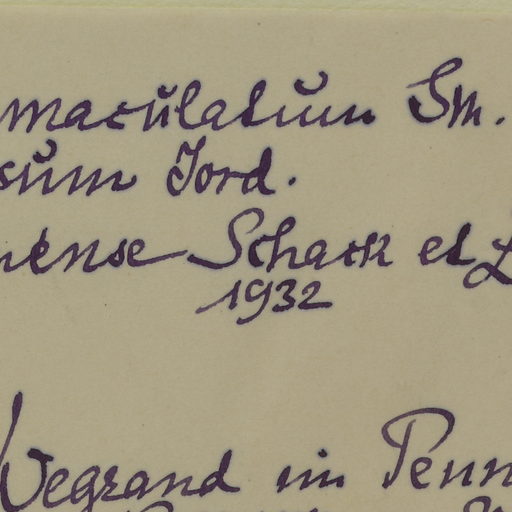 maculatum Sm.
sum Jord.
nense Schack et
1932
Wegrand im Penn